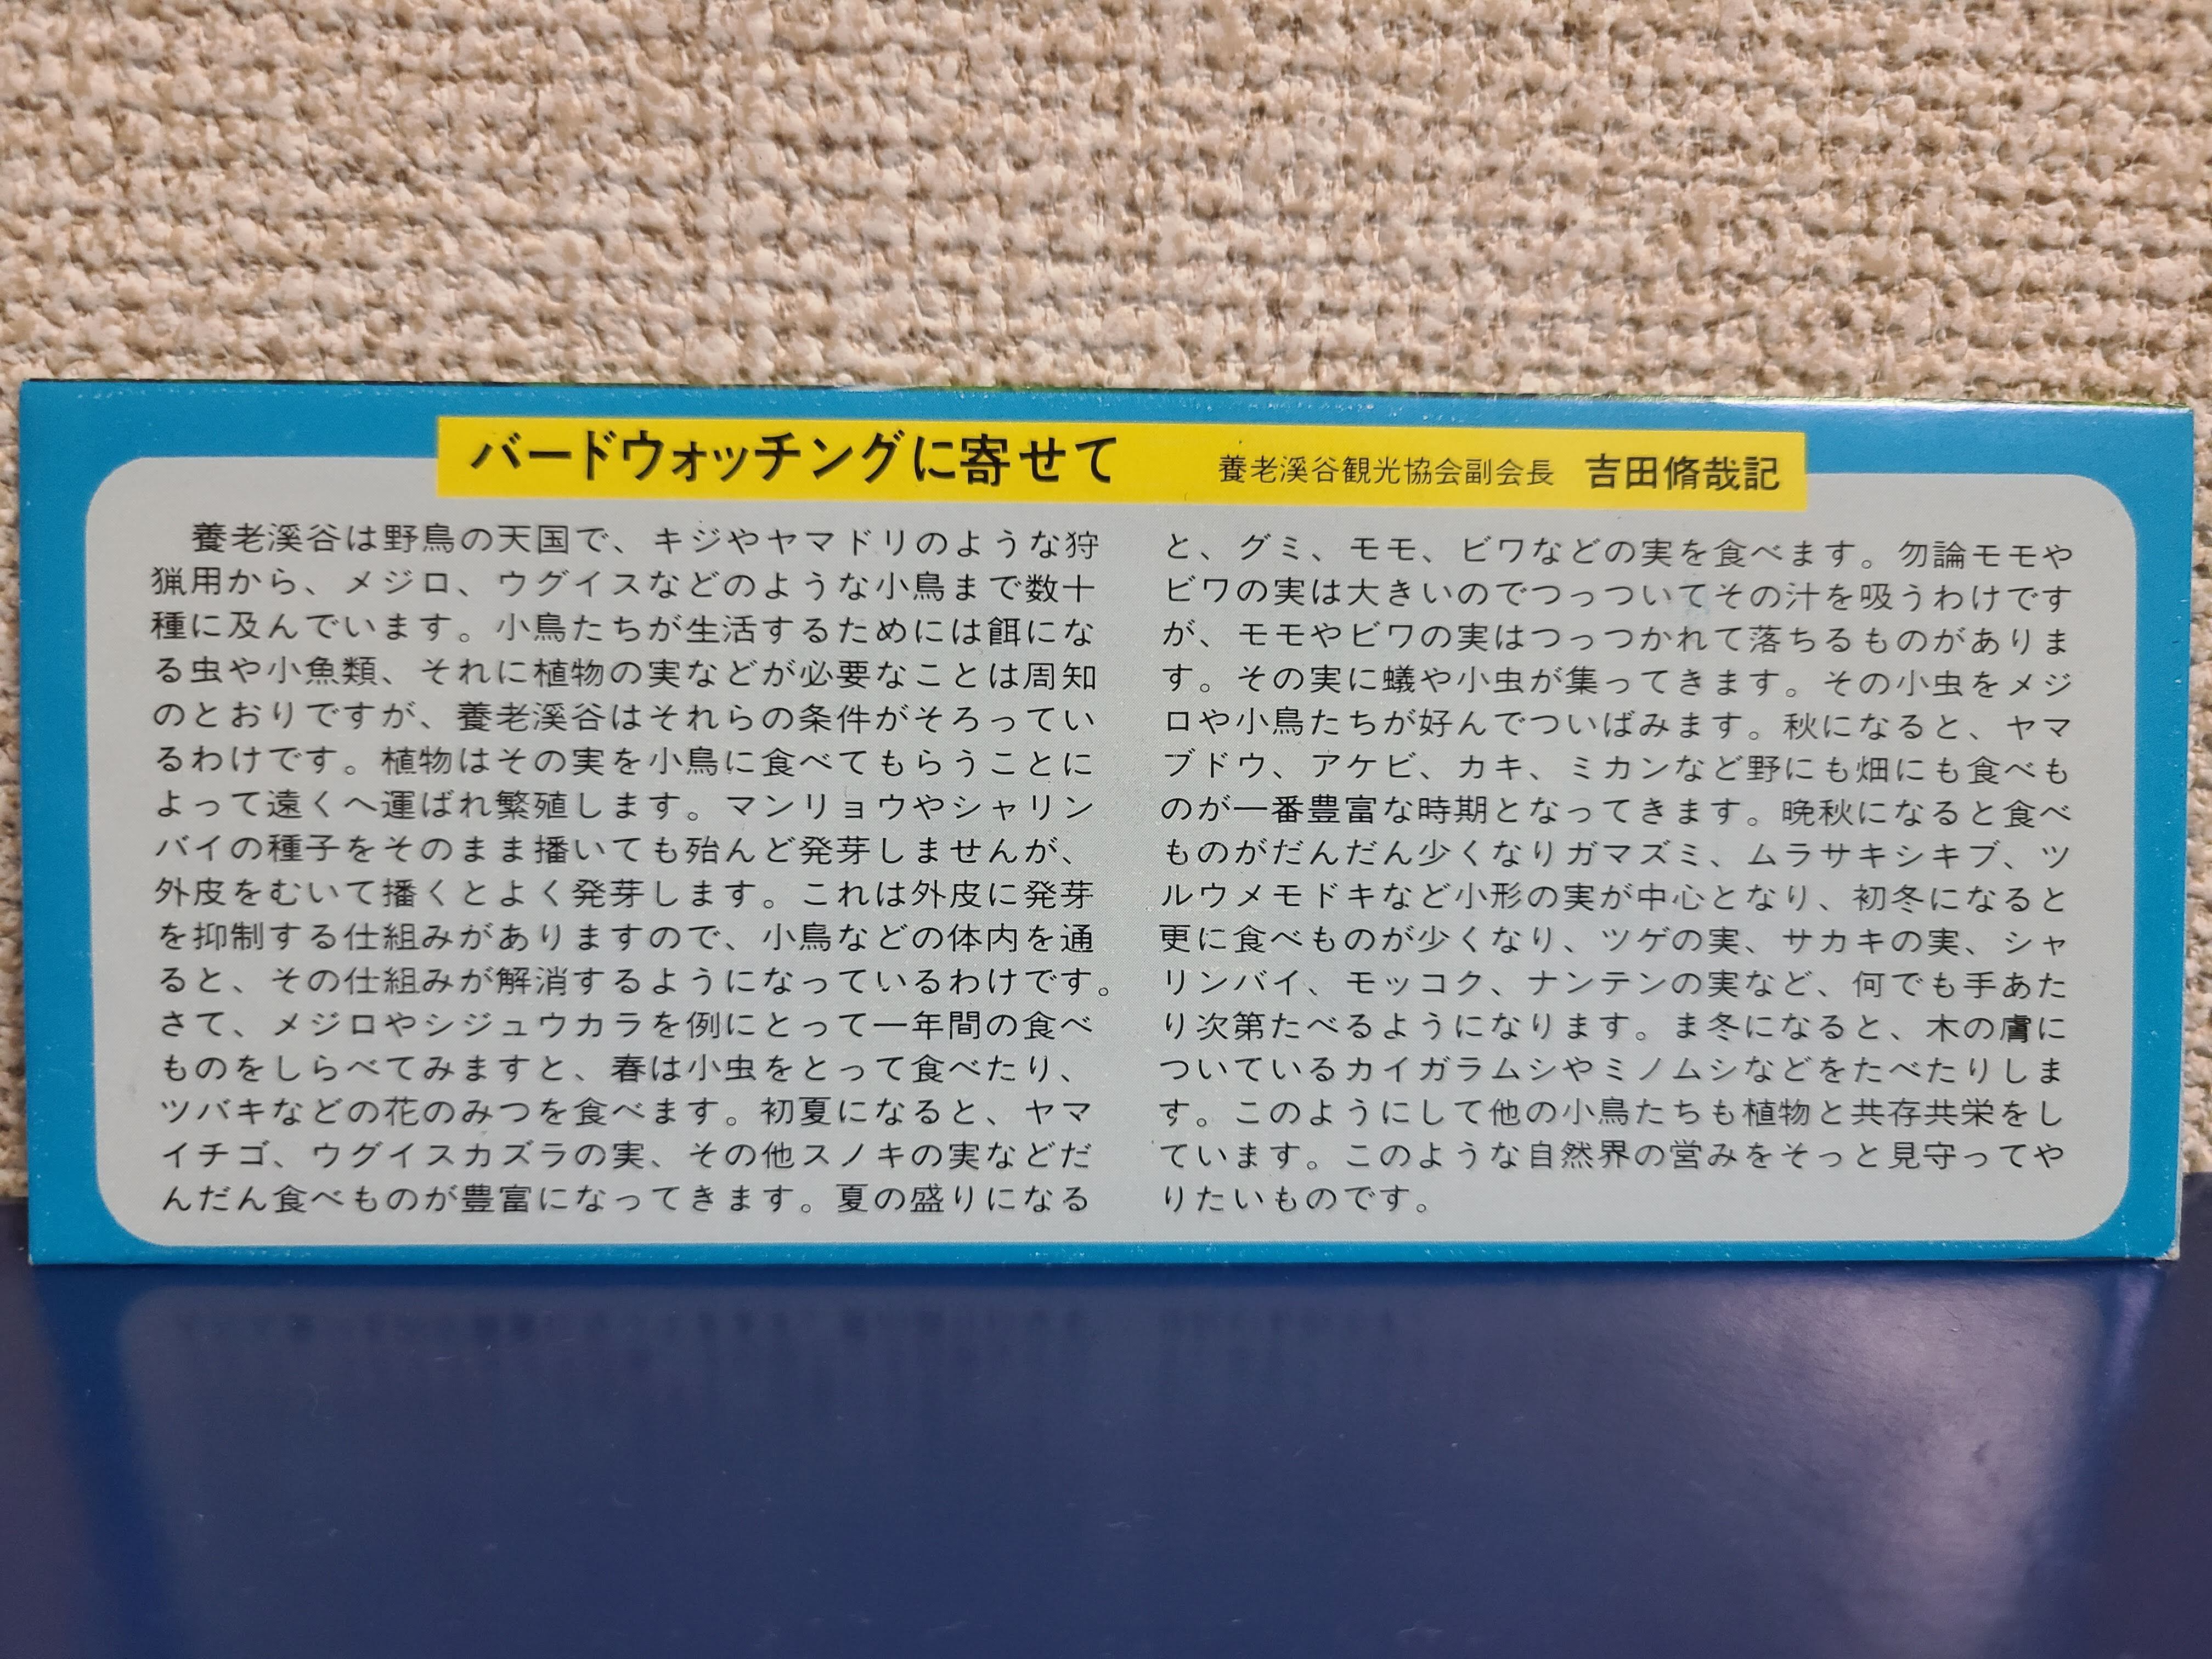 バードウォッチングに寄せて 養老溪谷観光協会副会長 吉田脩哉記
養老溪谷は野鳥の天国で、キジやヤマドリのような狩
猟用から、メジロ、ウグイスなどのような小鳥まで数十
種に及んでいます。小鳥たちが生活するためには餌にな
る虫や小魚類、それに植物の実などが必要なことは周知
のとおりですが、養老溪谷はそれらの条件がそろってい
るわけです。植物はその実を小鳥に食べてもらうことに
よって遠くへ運ばれ繁殖します。マンリョウやシャリン
バイの種子をそのまま播いても殆んど発芽しませんが、
外皮をむいて播くとよく発芽します。これは外皮に発芽
を抑制する仕組みがありますので、小鳥などの体内を通
ると、その仕組みが解消するようになっているわけです。
さて、メジロやシジュウカラを例にとって一年間の食べ
ものをしらべてみますと、春は小虫をとって食べたり、
ツバキなどの花のみつを食べます。初夏になると、ヤマ
イチゴ、ウグイスカズラの実、その他スノキの実などだ
んだん食べものが豊富になってきます。夏の盛りになる
と、グミ、モモ、ビワなどの実を食べます。勿論モモや
ビワの実は大きいのでつっついてその汁を吸うわけです
が、モモやビワの実はつっつかれて落ちるものがありま
す。その実に蟻や小虫が集ってきます。その小虫をメジ
ロや小鳥たちが好んでついばみます。秋になると、ヤマ
ブドウ、アケビ、カキ、ミカンなど野にも畑にも食べも
のが一番豊富な時期となってきます。晩秋になると食べ
ものがだんだん少くなりガマズミ、ムラサキシキブ、ツ
ルウメモドキなど小形の実が中心となり、初冬になると
更に食べものが少くなり、ツゲの実、サカキの実、シャ
リンバイ、モッコク、ナンテンの実など、何でも手あた
り次第たべるようになります。ま冬になると、木の膚に
ついているカイガラムシやミノムシなどをたべたりしま
す。このようにして他の小鳥たちも植物と共存共栄をし
ています。このような自然界の営みをそっと見守ってや
りたいものです。